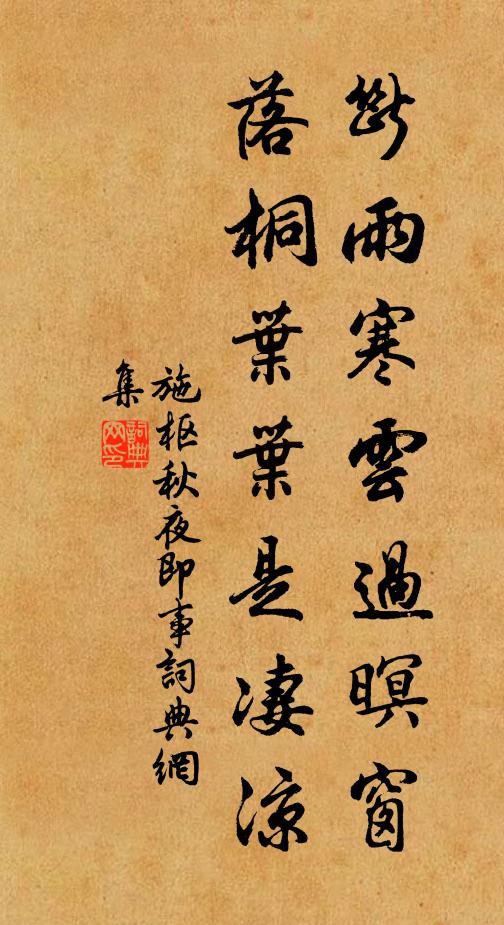 斷雨寒雲過暝窗
落桐葉葉是凄涼
施枢秋夜即事詞典網
集
詞典網印